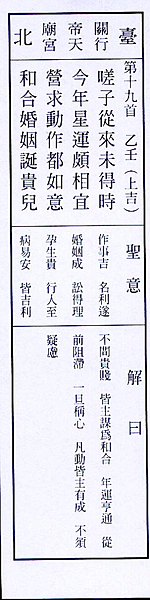 臺北
關行天宮
帝廟
第十九首 乙壬（上吉）
嗟子從來未得時
今年星運頗相宜
營求動作都如意
和合婚姻誕貴兒
聖意
作事吉 名利遂
婚姻成 訟得理
孕生貴 行人至
病易安 皆吉利
解曰
不問貴賤 皆主謀爲和合 年運亨通 從
前阻滯 一旦稱心 凡動皆主有成 不須
疑慮